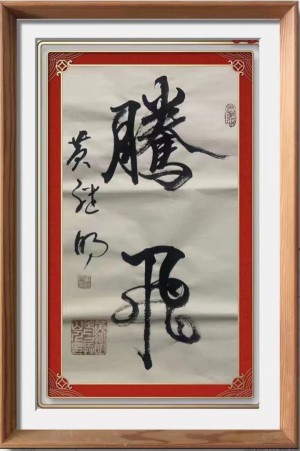 騰飛
黄继明